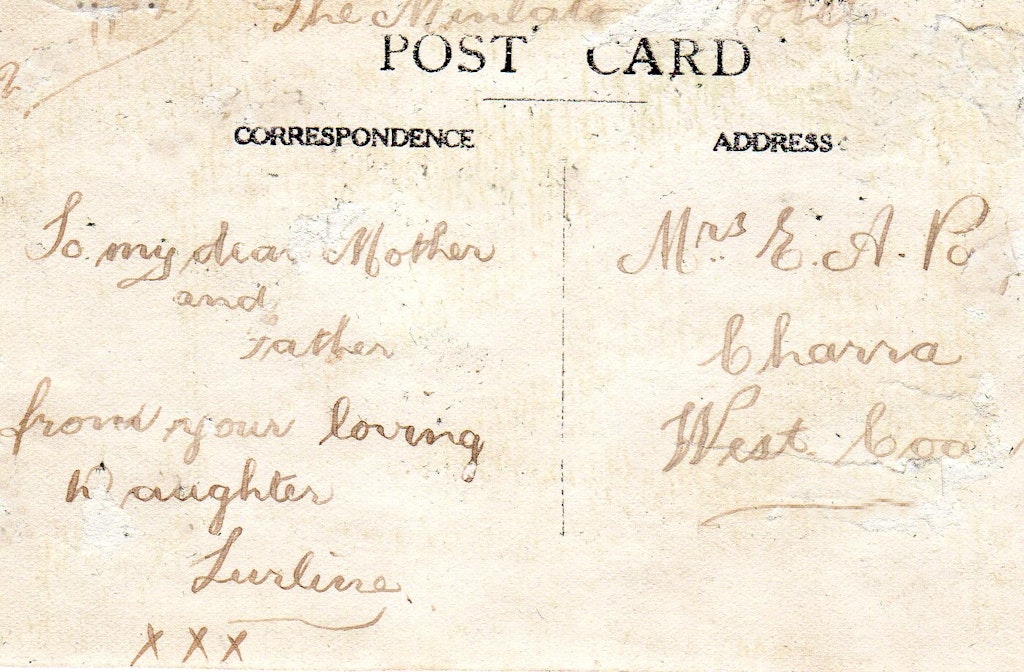 The Minlato
POST CARD
CORRESPONDENCE
ADDRESS
To my dear Mother
and
Father
from your loving
Daughter
Lurline
x x x
Mrs E. A. Po
Charra
West Coa